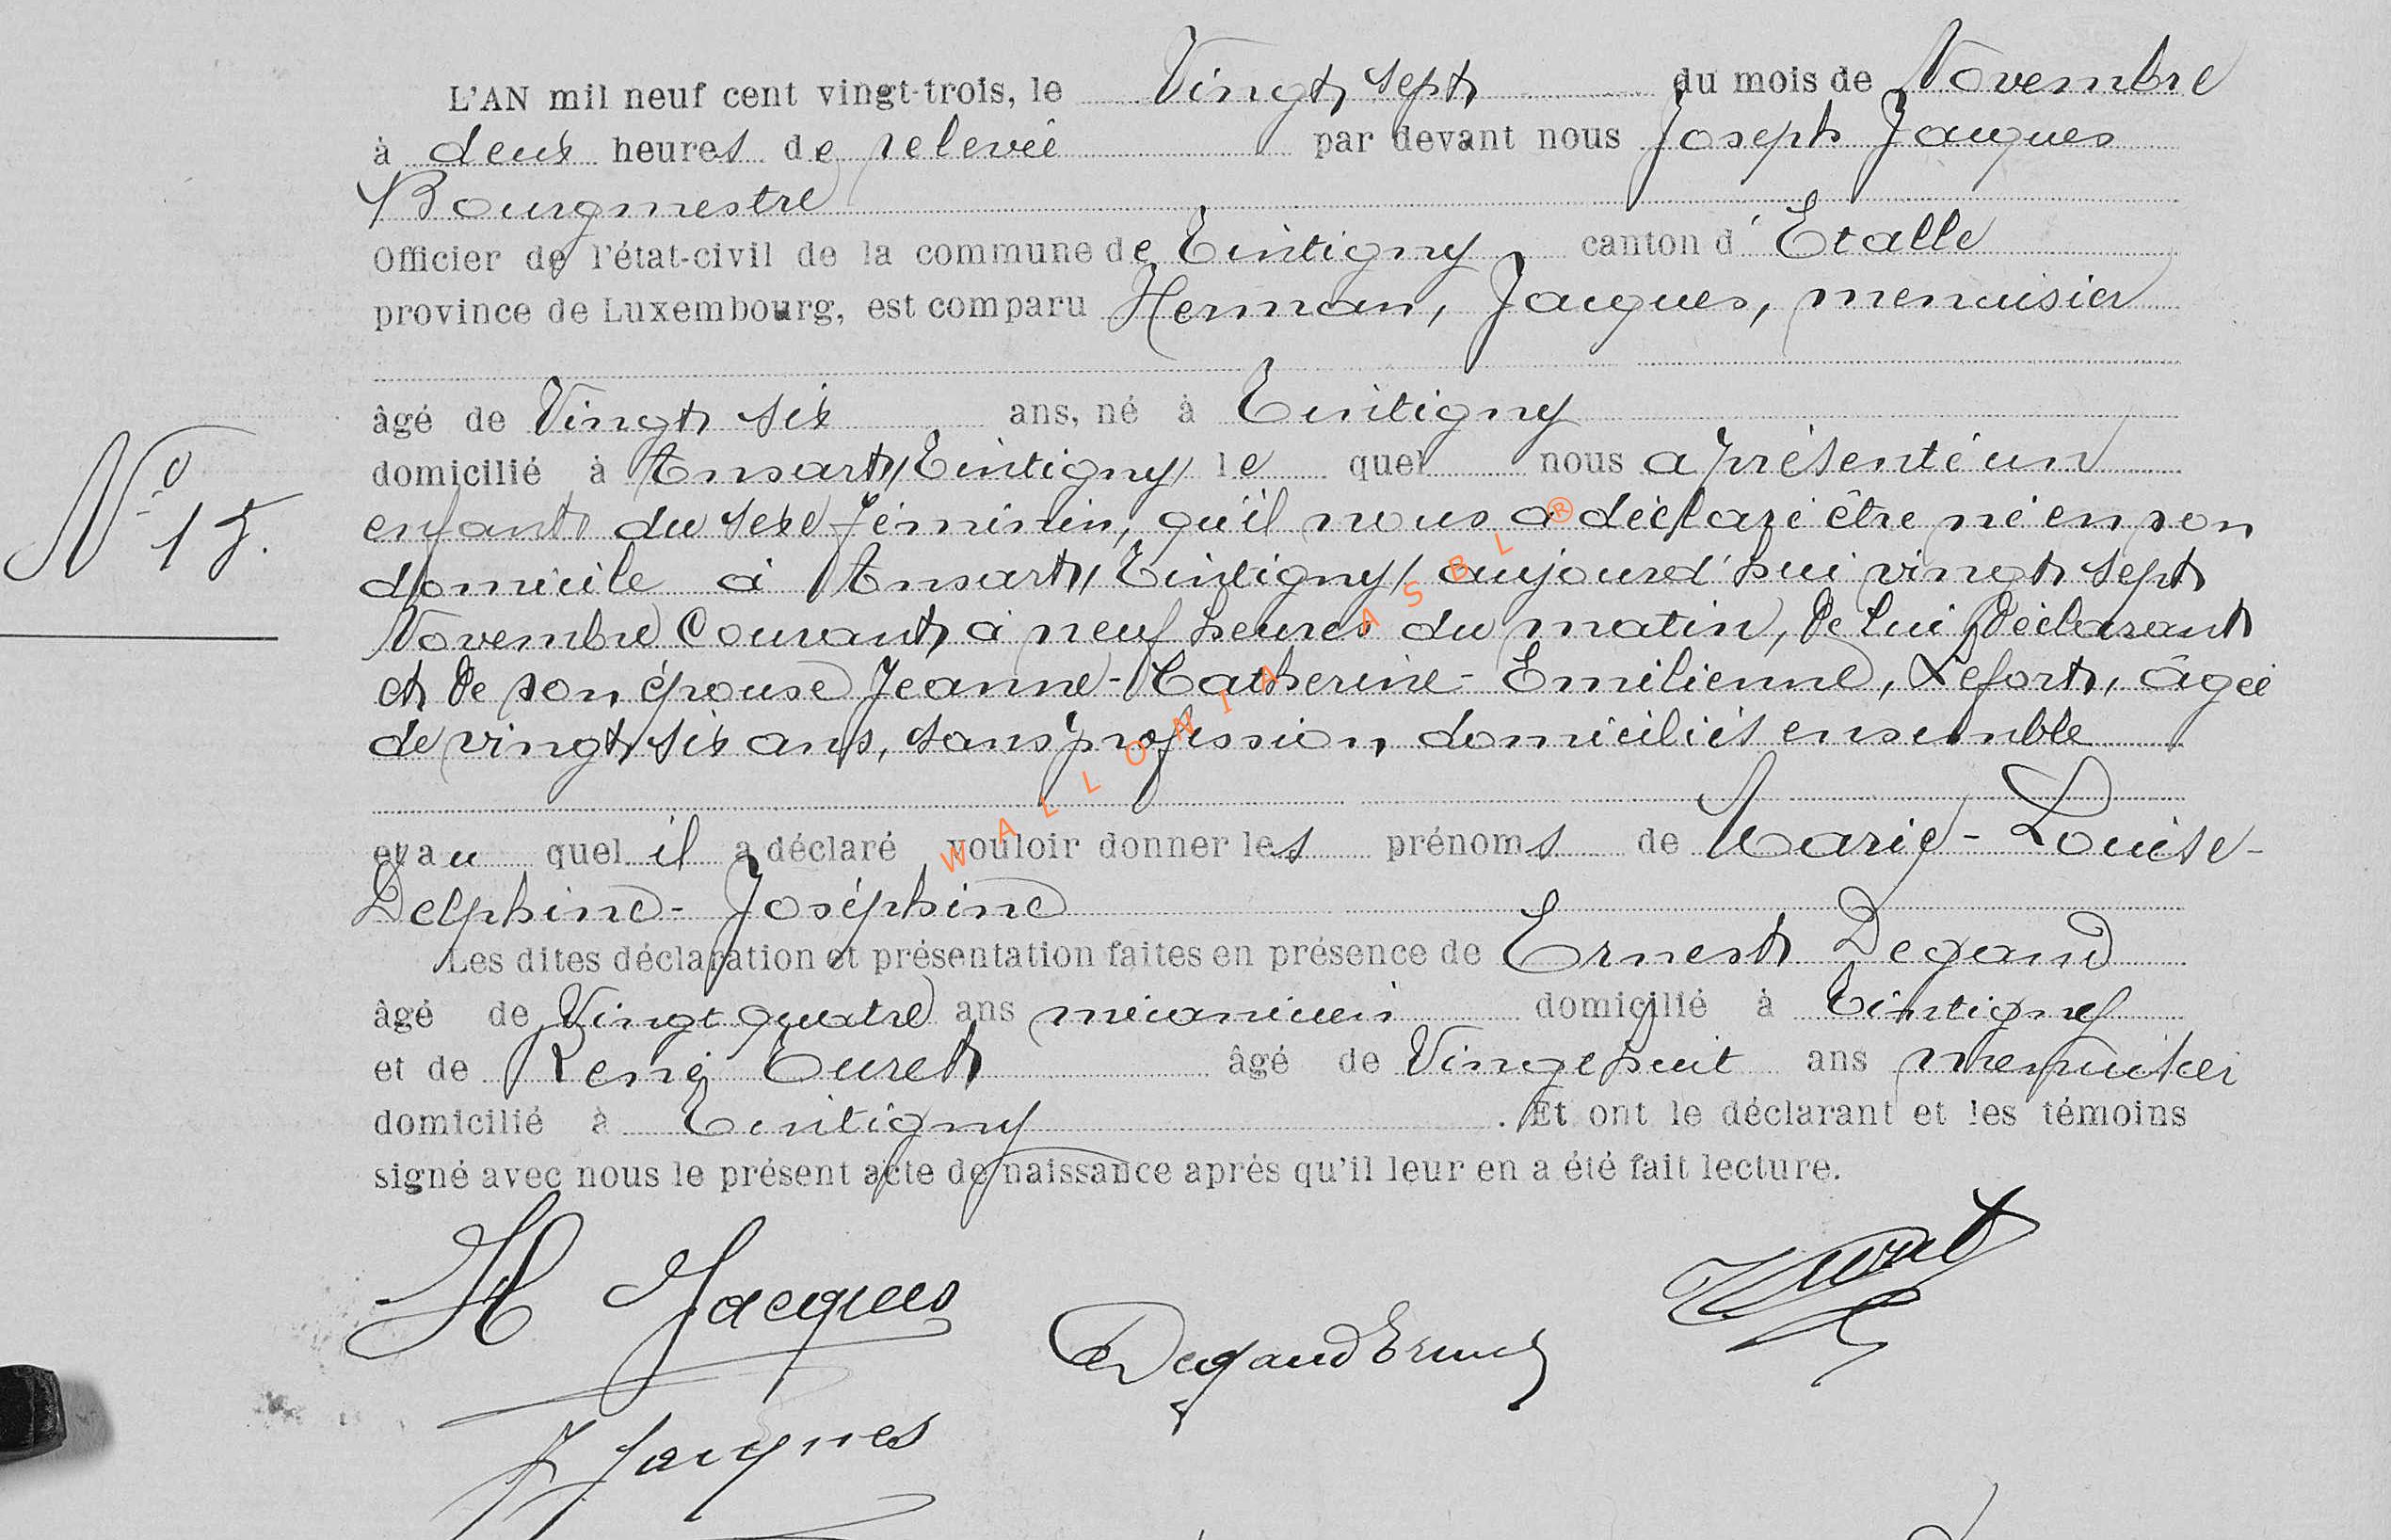 L'AN mil neuf cent vingt-trois, le Vingt sept du mois de Novembre
à deux heures de relevée par devant nous Joseph Jacques
Bourgmestre
Officier de l'état-civil de la commune de Tintigny canton d'Etalle
province de Luxembourg, est comparu Herman, Jacques, menuisier
âgé de Vingt six ans, né à Tintigny
domicilié à Ansart, (Tintigny) le quel nous a présenté un
N° 15.
enfant du sexe féminin, qu'il nous a déclaré être né en son
domicile à Ansart, (Tintigny) aujourd'hui vingt sept
Novembre Courant, à neuf heures du matin, De lui Déclarant
et De son épouse Jeanne-Catherine-Emilienne, Lefort, âgée
de vingt six ans, sans profession, domiciliés ensemble
et au quel il a déclaré vouloir donner les prénoms de Marie-Louise-
Delphine-Joséphine
Les dites déclaration et présentation faites en présence de Ernest Degand
âgé de Vingt quatre ans mécanicien domicilié à Tintigny
et de René Turet âgé de Vingt huit ans menuisier
domicilié à Tintigny. Et ont le déclarant et les témoins
signé avec nous le présent acte de naissance après qu'il leur en a été fait lecture.
H Jacques
Degand Ernest
Turet
J Jacques
WALLONIA ASBL ®